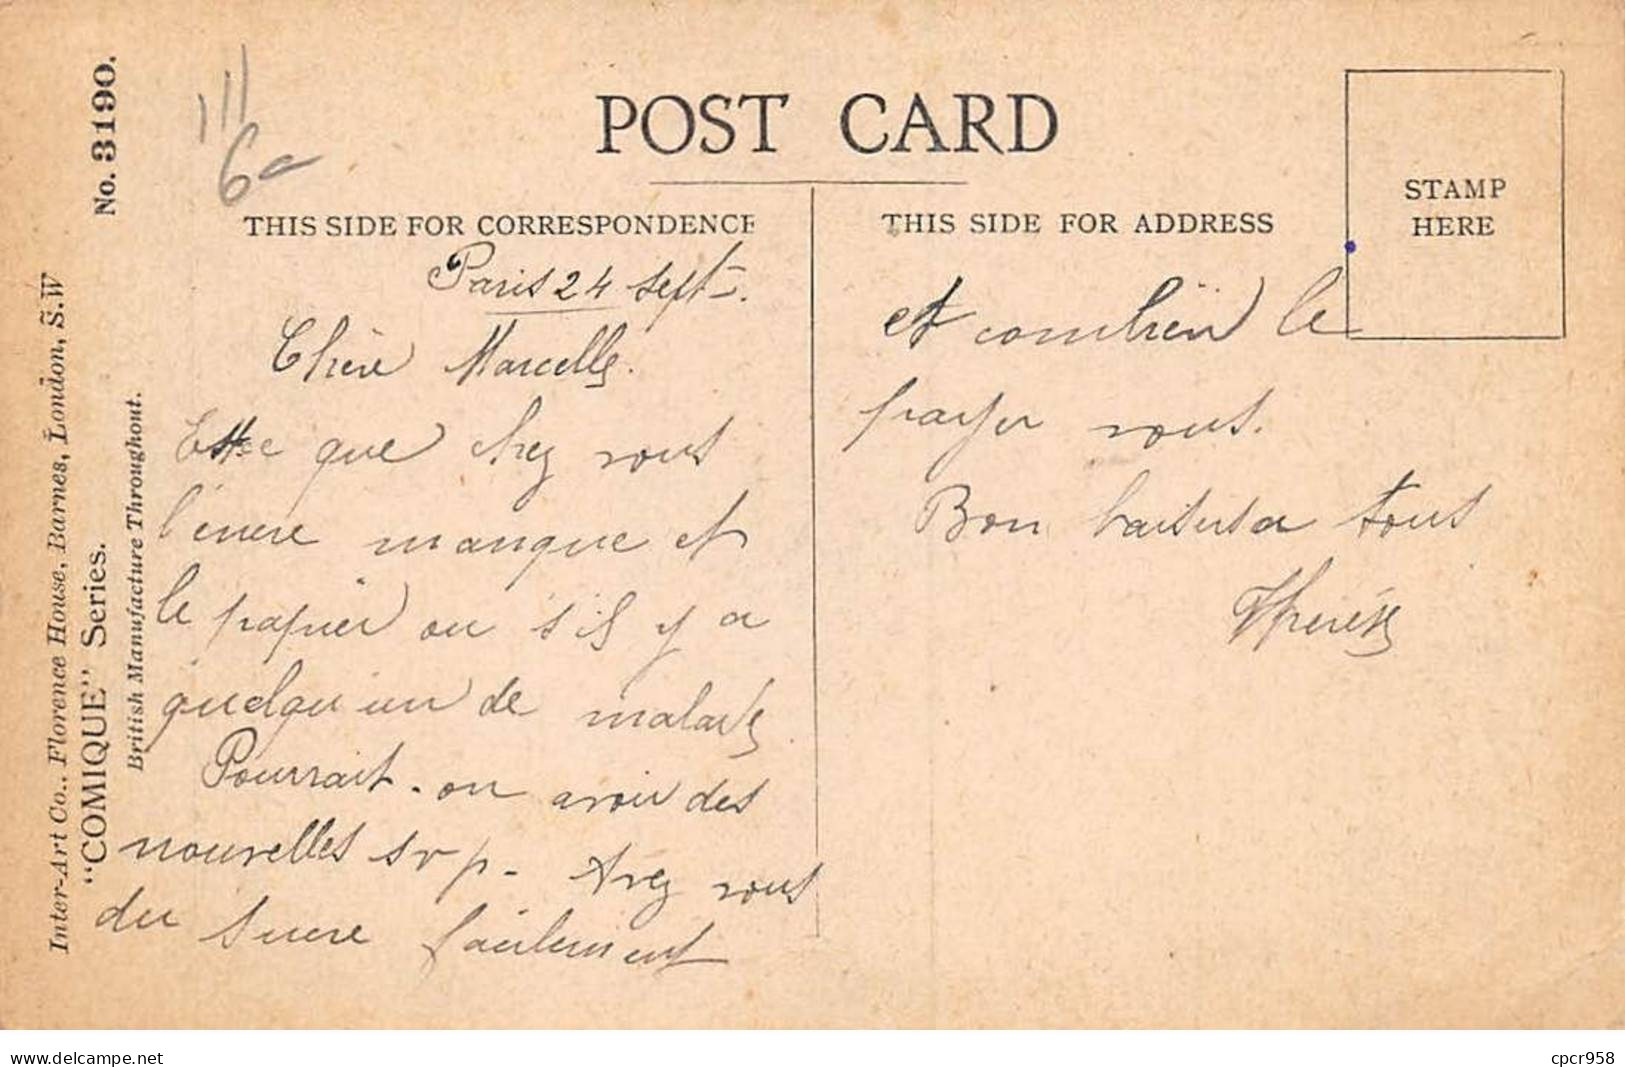 No. 3190.
Inter-Art Co., Florence House, Barnes, London, S.W
"COMIQUE" Series.
British Manufacture Throughout.
6
POST CARD
THIS SIDE FOR CORRESPONDENCE
Paris 24 Sept.
Chère Marcelle.
Est-ce que chez vous
l'encre manque et
le papier ou s'il y a
quelqu'un de malade
Pourrait-on avoir des
nouvelles svp. Avez vous
du sucre facilement
THIS SIDE FOR ADDRESS
STAMP
HERE
et combien le
payer vous.
Bon baisers a tous
Therèse
www.delcampe.net
cpcr958